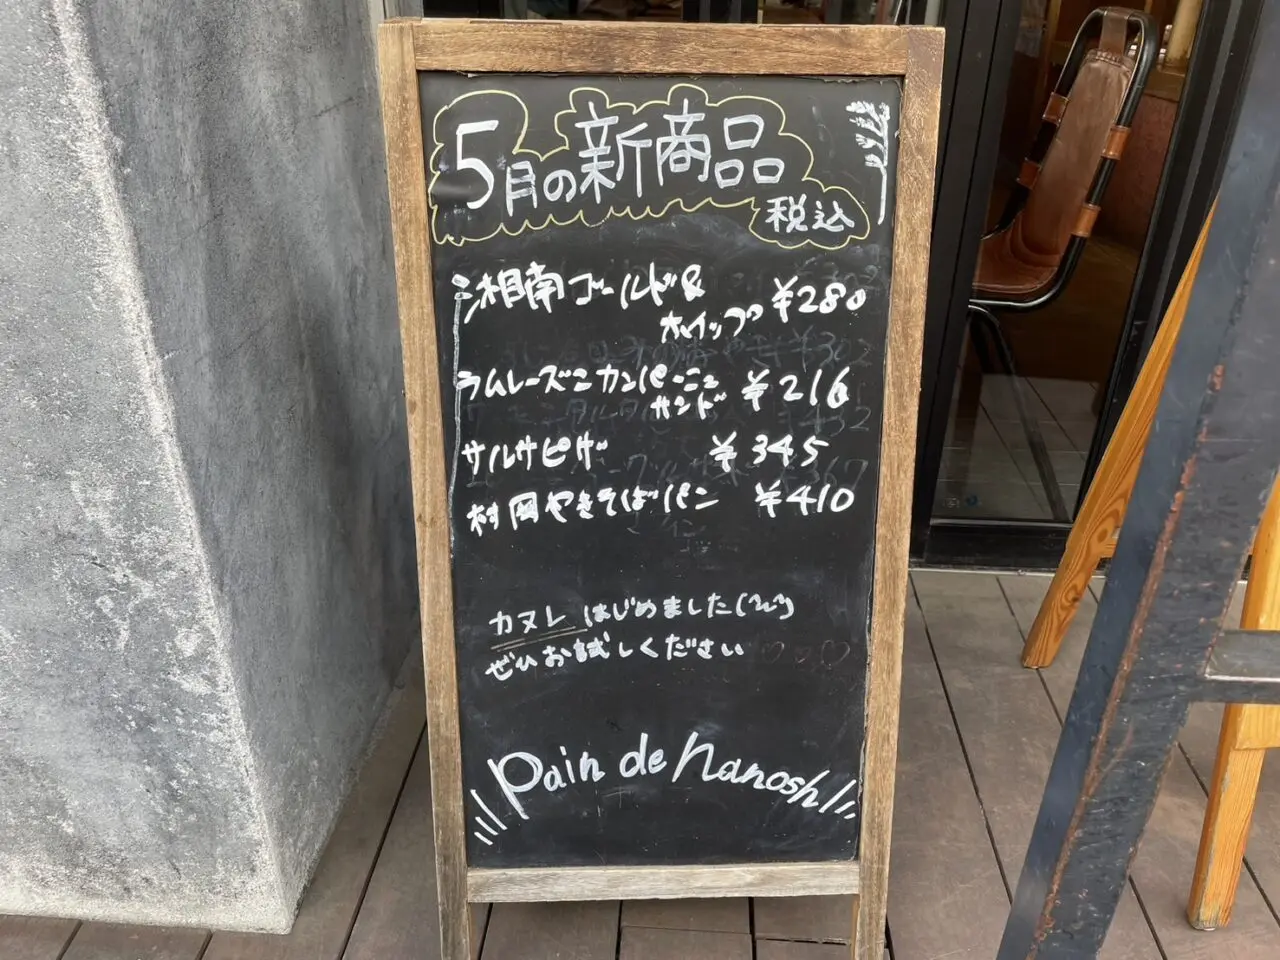 5月の新商品
税込
湘南ゴールド&
ホイップ ¥280
ラムレーズンカンパーニュ
サンド ¥216
サルサピザ ¥345
村岡やきそばパン ¥410
カヌレ はじめました
ぜひお試しください♡♡♡
Pain de nanosh